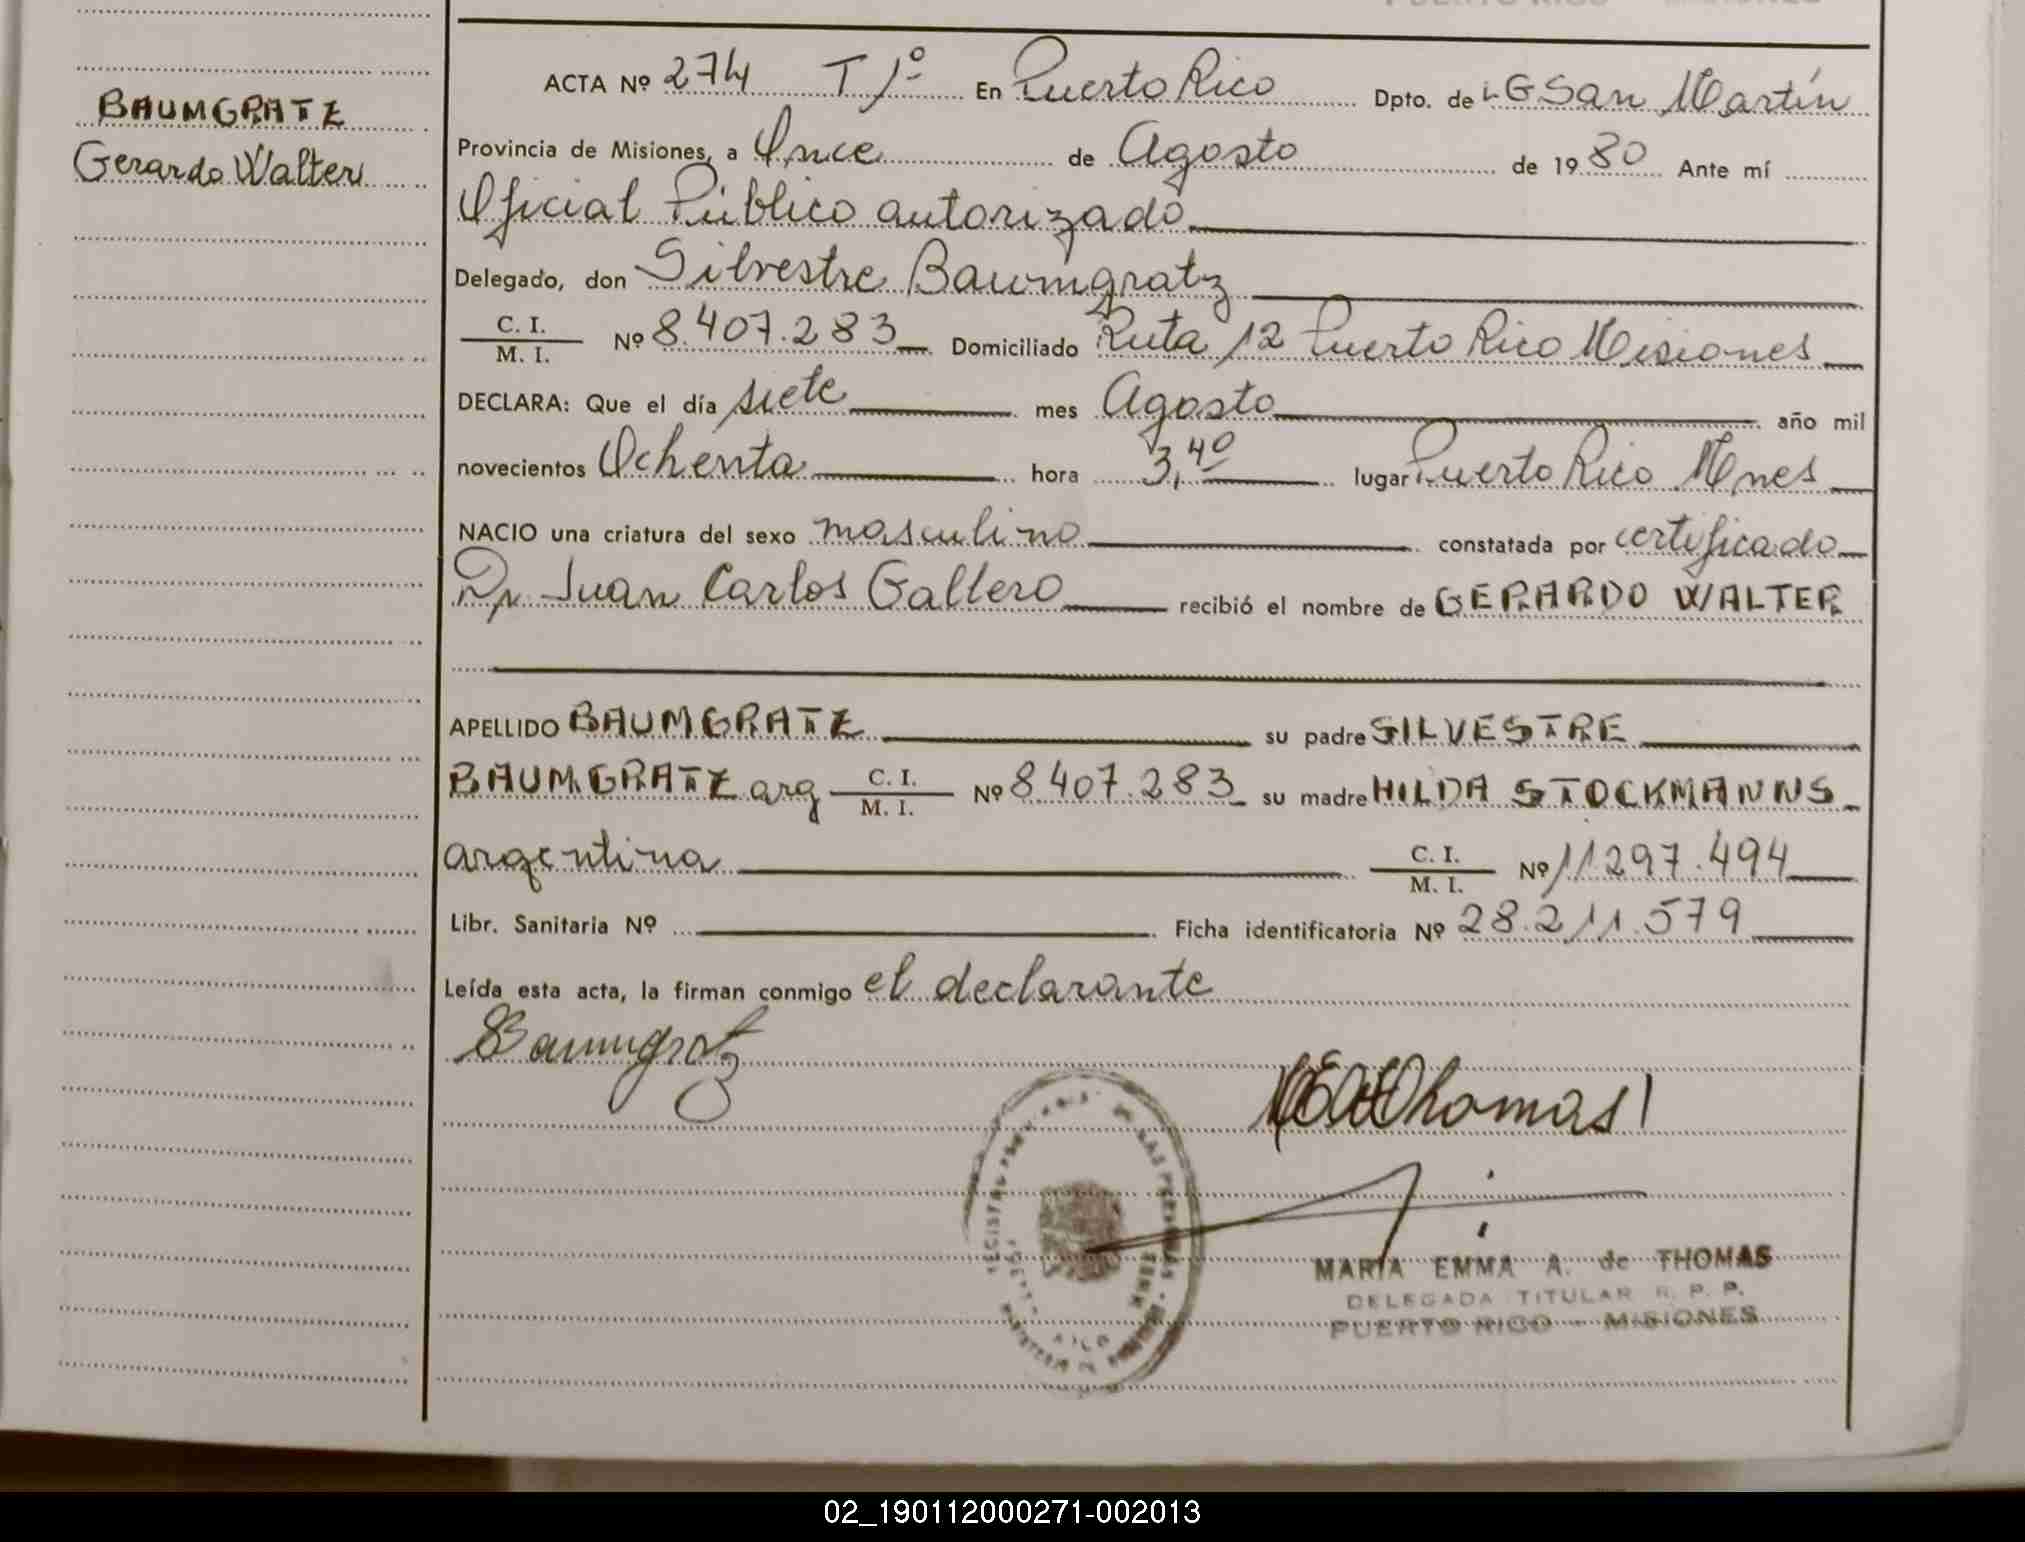 BAUMGRATZ
Gerardo Walter
ACTA Nº 274 T 1º En Puerto Rico Dpto. de LG San Martín
Provincia de Misiones, a Once de Agosto de 1980 Ante mí
Oficial Público autorizado
Delegado, don Silvestre Baumgratz
C. I.
M. I. Nº 8.407.283 Domiciliado Ruta 12 Puerto Rico Misiones
DECLARA: Que el día siete mes Agosto año mil
novecientos Ochenta hora 3,40 lugar Puerto Rico Mnes
NACIO una criatura del sexo masculino constatada por certificado
Dr Juan Carlos Gallero recibió el nombre de GERARDO WALTER
APELLIDO BAUMGRATZ su padre SILVESTRE
BAUMGRATZ arg C. I.
M. I. Nº 8.407.283 su madre HILDA STOCKMANNS
argentina C. I.
M. I. Nº 11.297.494
Libr. Sanitaria Nº Ficha identificatoria Nº 28.211.579
Leída esta acta, la firman conmigo el declarante
SBaumgratz
MEAdeThomas
MARIA EMMA A. de THOMAS
DELEGADA TITULAR R. P. P.
PUERTO RICO - MISIONES
02_190112000271-002013